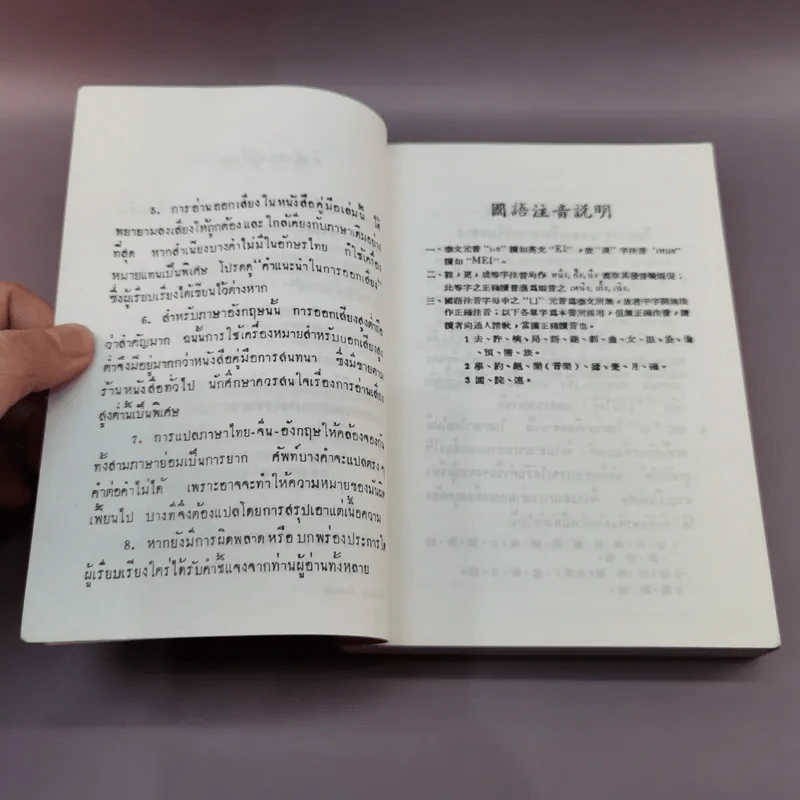 5. การอ่านออกเสียงในหนังสือคู่มือเล่มนี้ ได้
พยายามลงเสียงให้ถูกต้องและใกล้เคียงกับภาษาเดิมอย่าง
ที่สุด หากสำเนียงบางคำไม่มีในอักษรไทย ก็ใช้เครื่อง
หมายแทนเป็นพิเศษ โปรดดู "คำแนะนำในการออกเสียง"
ซึ่งผู้เรียบเรียงได้เขียนไว้ต่างหาก
6. สำหรับภาษาอังกฤษนั้น การออกเสียงสูงต่ำถือ
ว่าสำคัญมาก ฉนั้นการใช้เครื่องหมายสำหรับบอกเสียงสูง
ต่ำจึงมีอยู่มากกว่าหนังสือคู่มือการสนทนา ซึ่งมีขายตาม
ร้านหนังสือทั่วไป นักศึกษาควรสนใจเรื่องการอ่านเสียง
สูงต่ำนี้เป็นพิเศษ
7. การแปลภาษาไทย-จีน-อังกฤษให้คล้องจองกัน
ทั้งสามภาษาย่อมเป็นการยาก ศัพท์บางคำจะแปลตรง ๆ
คำต่อคำไม่ได้ เพราะอาจจะทำให้ความหมายของมันผิด
เพี้ยนไป บางทีจึงต้องแปลโดยการสรุปเอาแต่เนื้อความ
8. หากยังมีการผิดพลาด หรือ บกพร่องประการใด
ผู้เรียบเรียงใคร่ได้รับคำชี้แจงจากท่านผู้อ่านทั้งหลาย
國語注音說明
一、泰文元音 "เ-ย" 讀如英文 "EI"，故 "美" 字注音 "เหมย"
讀如 "MEI"。
二、能，更，成等字注音均作
此等字之正確讀音應爲鼻音之
三、國語注音字母中之 "ㄩ" 元音爲泰文所無，故若干字例無法
作正確注音；以下各單字爲本書所採用，但無正確注音，請
讀者向通人請敎，當獲正確讀音也。
1 去、許、
2 學、約、絕、樂（音樂）、
3 園、院、遠。